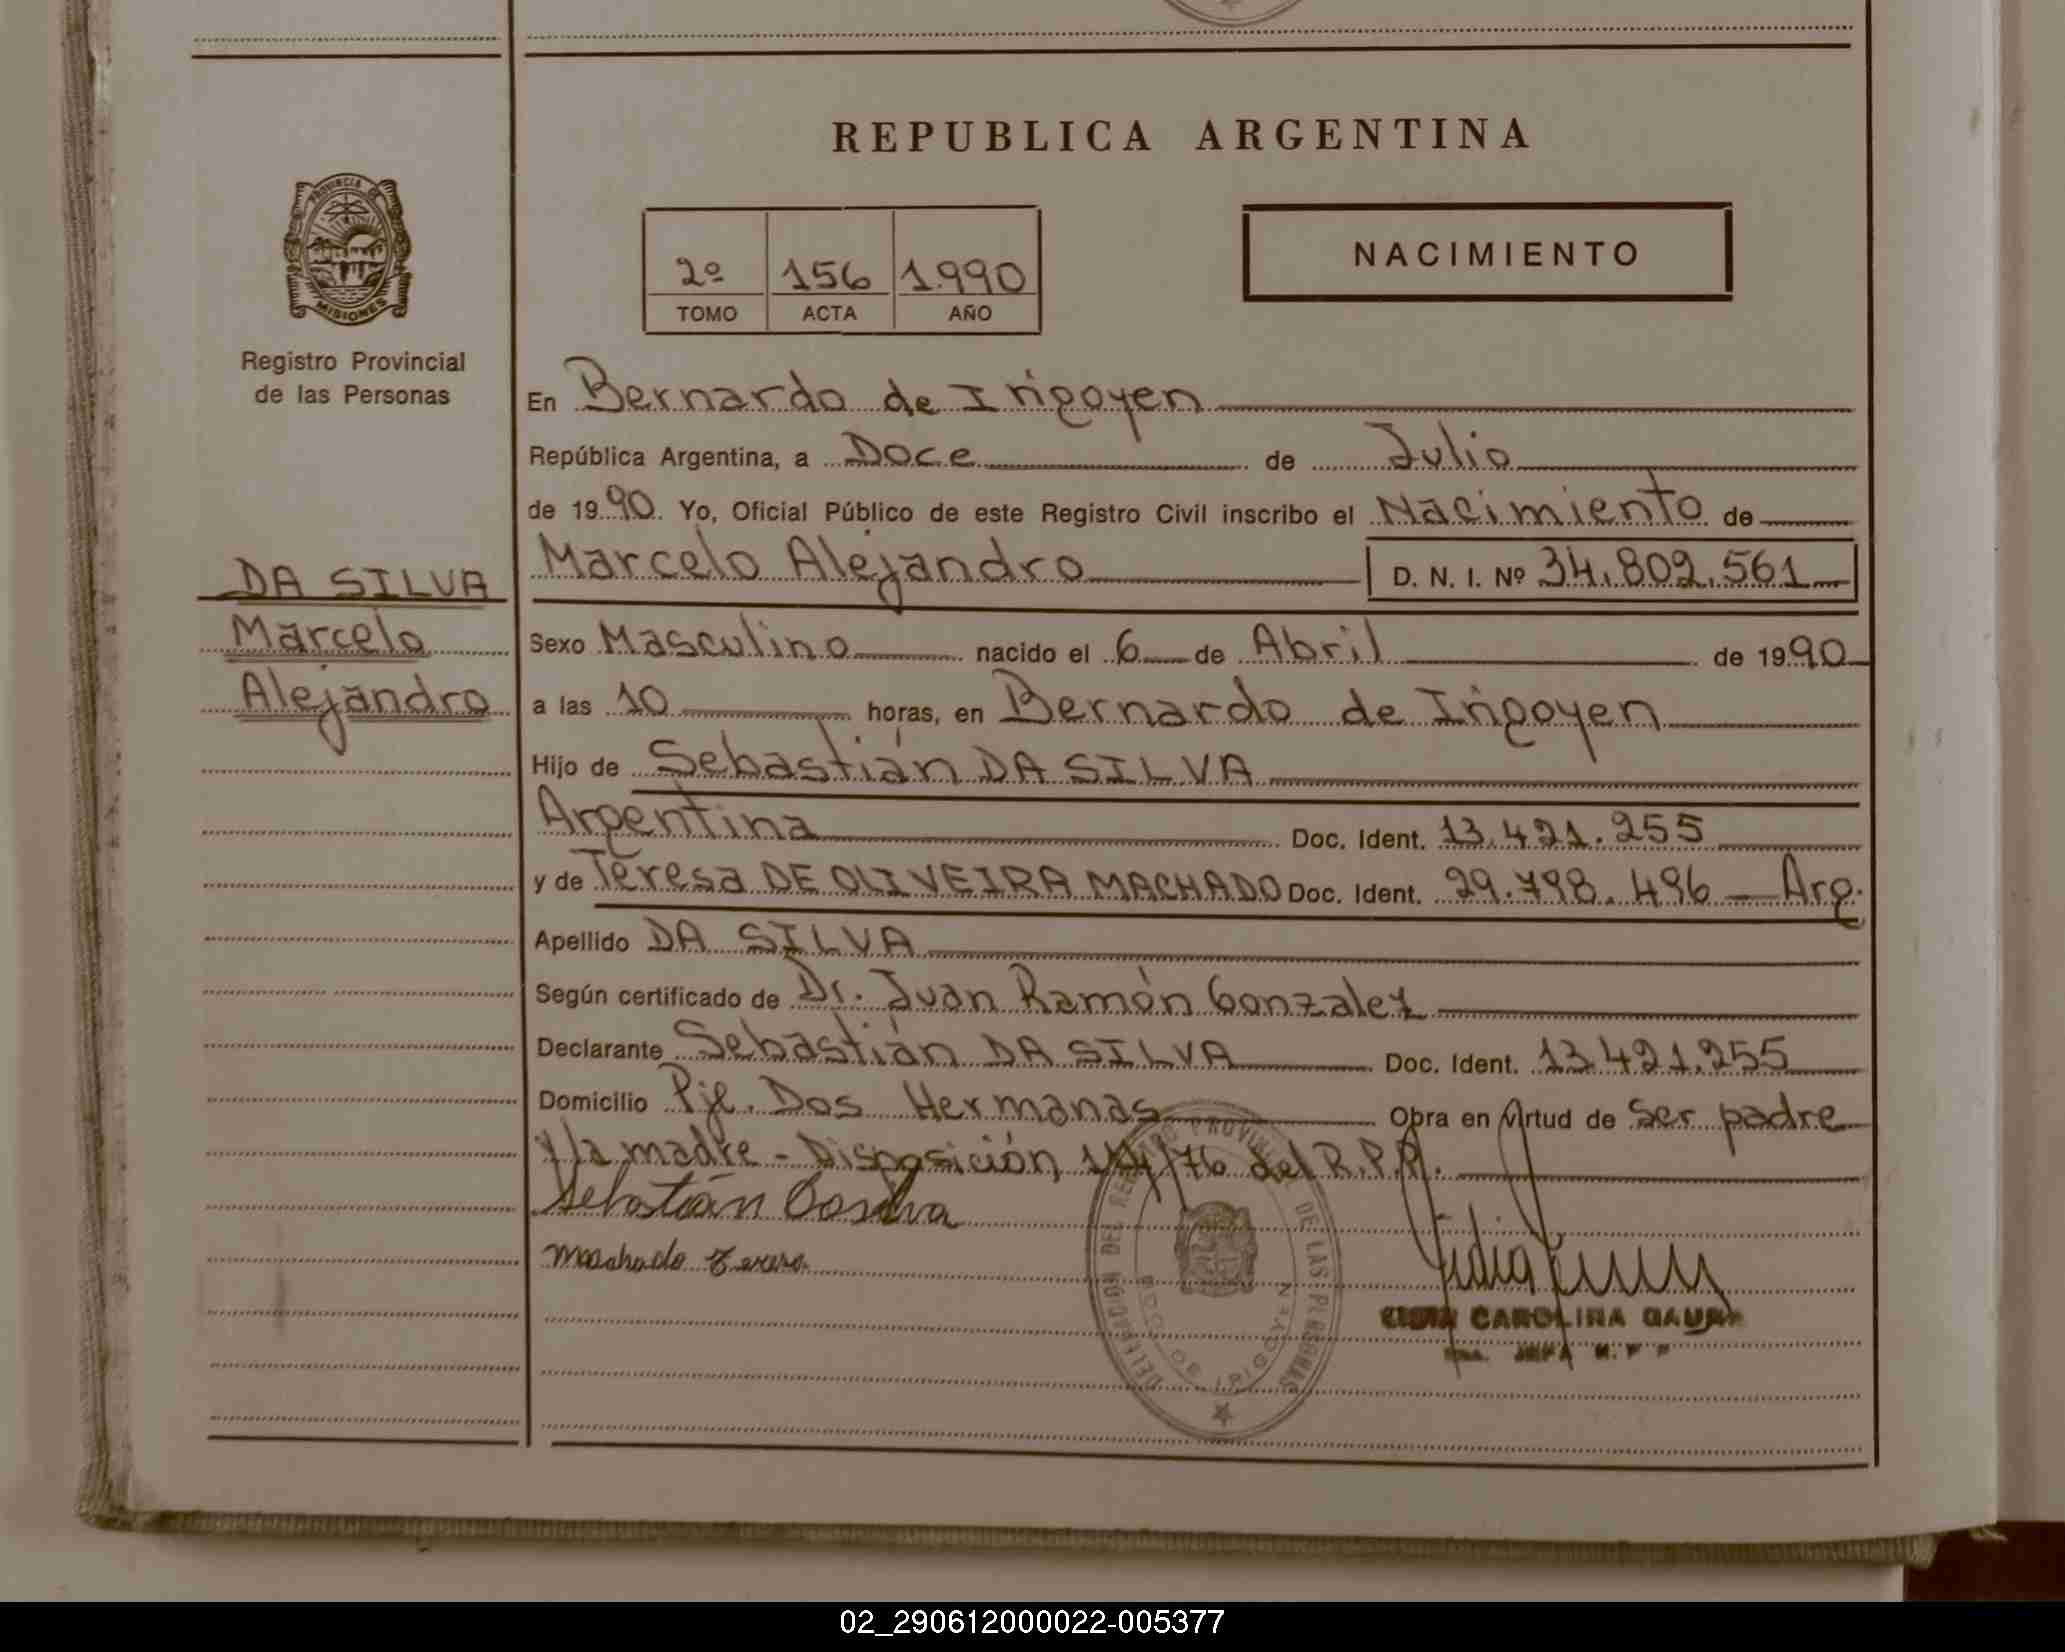 REPUBLICA ARGENTINA
PROVINCIA DE
MISIONES
Registro Provincial
de las Personas
2º 156 1.990
TOMO ACTA AÑO
NACIMIENTO
En Bernardo de Irigoyen
República Argentina, a Doce de Julio
de 1990. Yo, Oficial Público de este Registro Civil inscribo el Nacimiento de
DA SILVA
Marcelo
Alejandro
Marcelo Alejandro D. N. I. Nº 34.802.561
Sexo Masculino nacido el 6 de Abril de 1990
a las 10 horas, en Bernardo de Irigoyen
Hijo de Sebastián DA SILVA
Argentina Doc. Ident. 13.421.255
y de Teresa DE OLIVEIRA MACHADO Doc. Ident. 29.798.496 - Arg.
Apellido DA SILVA
Según certificado de Dr. Juan Ramón Gonzalez
Declarante Sebastián DA SILVA Doc. Ident. 13.421.255
Domicilio Pje. Dos Hermanas Obra en virtud de ser padre
y la madre - Disposición /76 del R.P.P.
Sebastián
Machado Teresa
DELEGACION DEL REGISTRO PROVINCIAL DE LAS PERSONAS
BDO. DE IRIGOYEN
CAROLINA
02_290612000022-005377